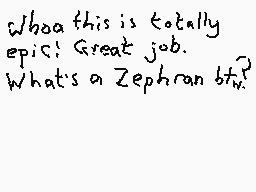 Whoa this is totally
epic! Great job.
What's a Zephran btw?